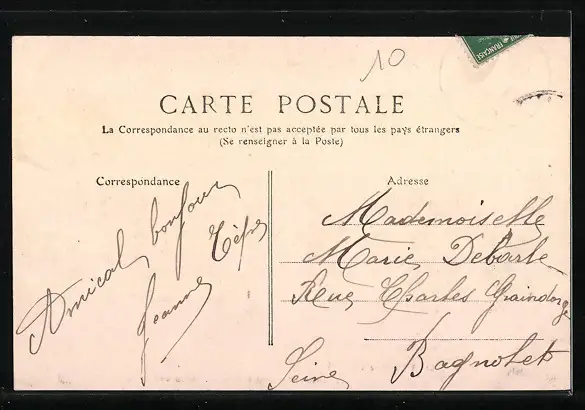 10
CARTE POSTALE
La Correspondance au recto n'est pas acceptée par tous les pays étrangers
(Se renseigner à la Poste)
Correspondance
Amical bonjour
Jeanne
Adresse
Mademoiselle
Marie Debarle
Rue Charles Graindorge
Bagnolet
Seine